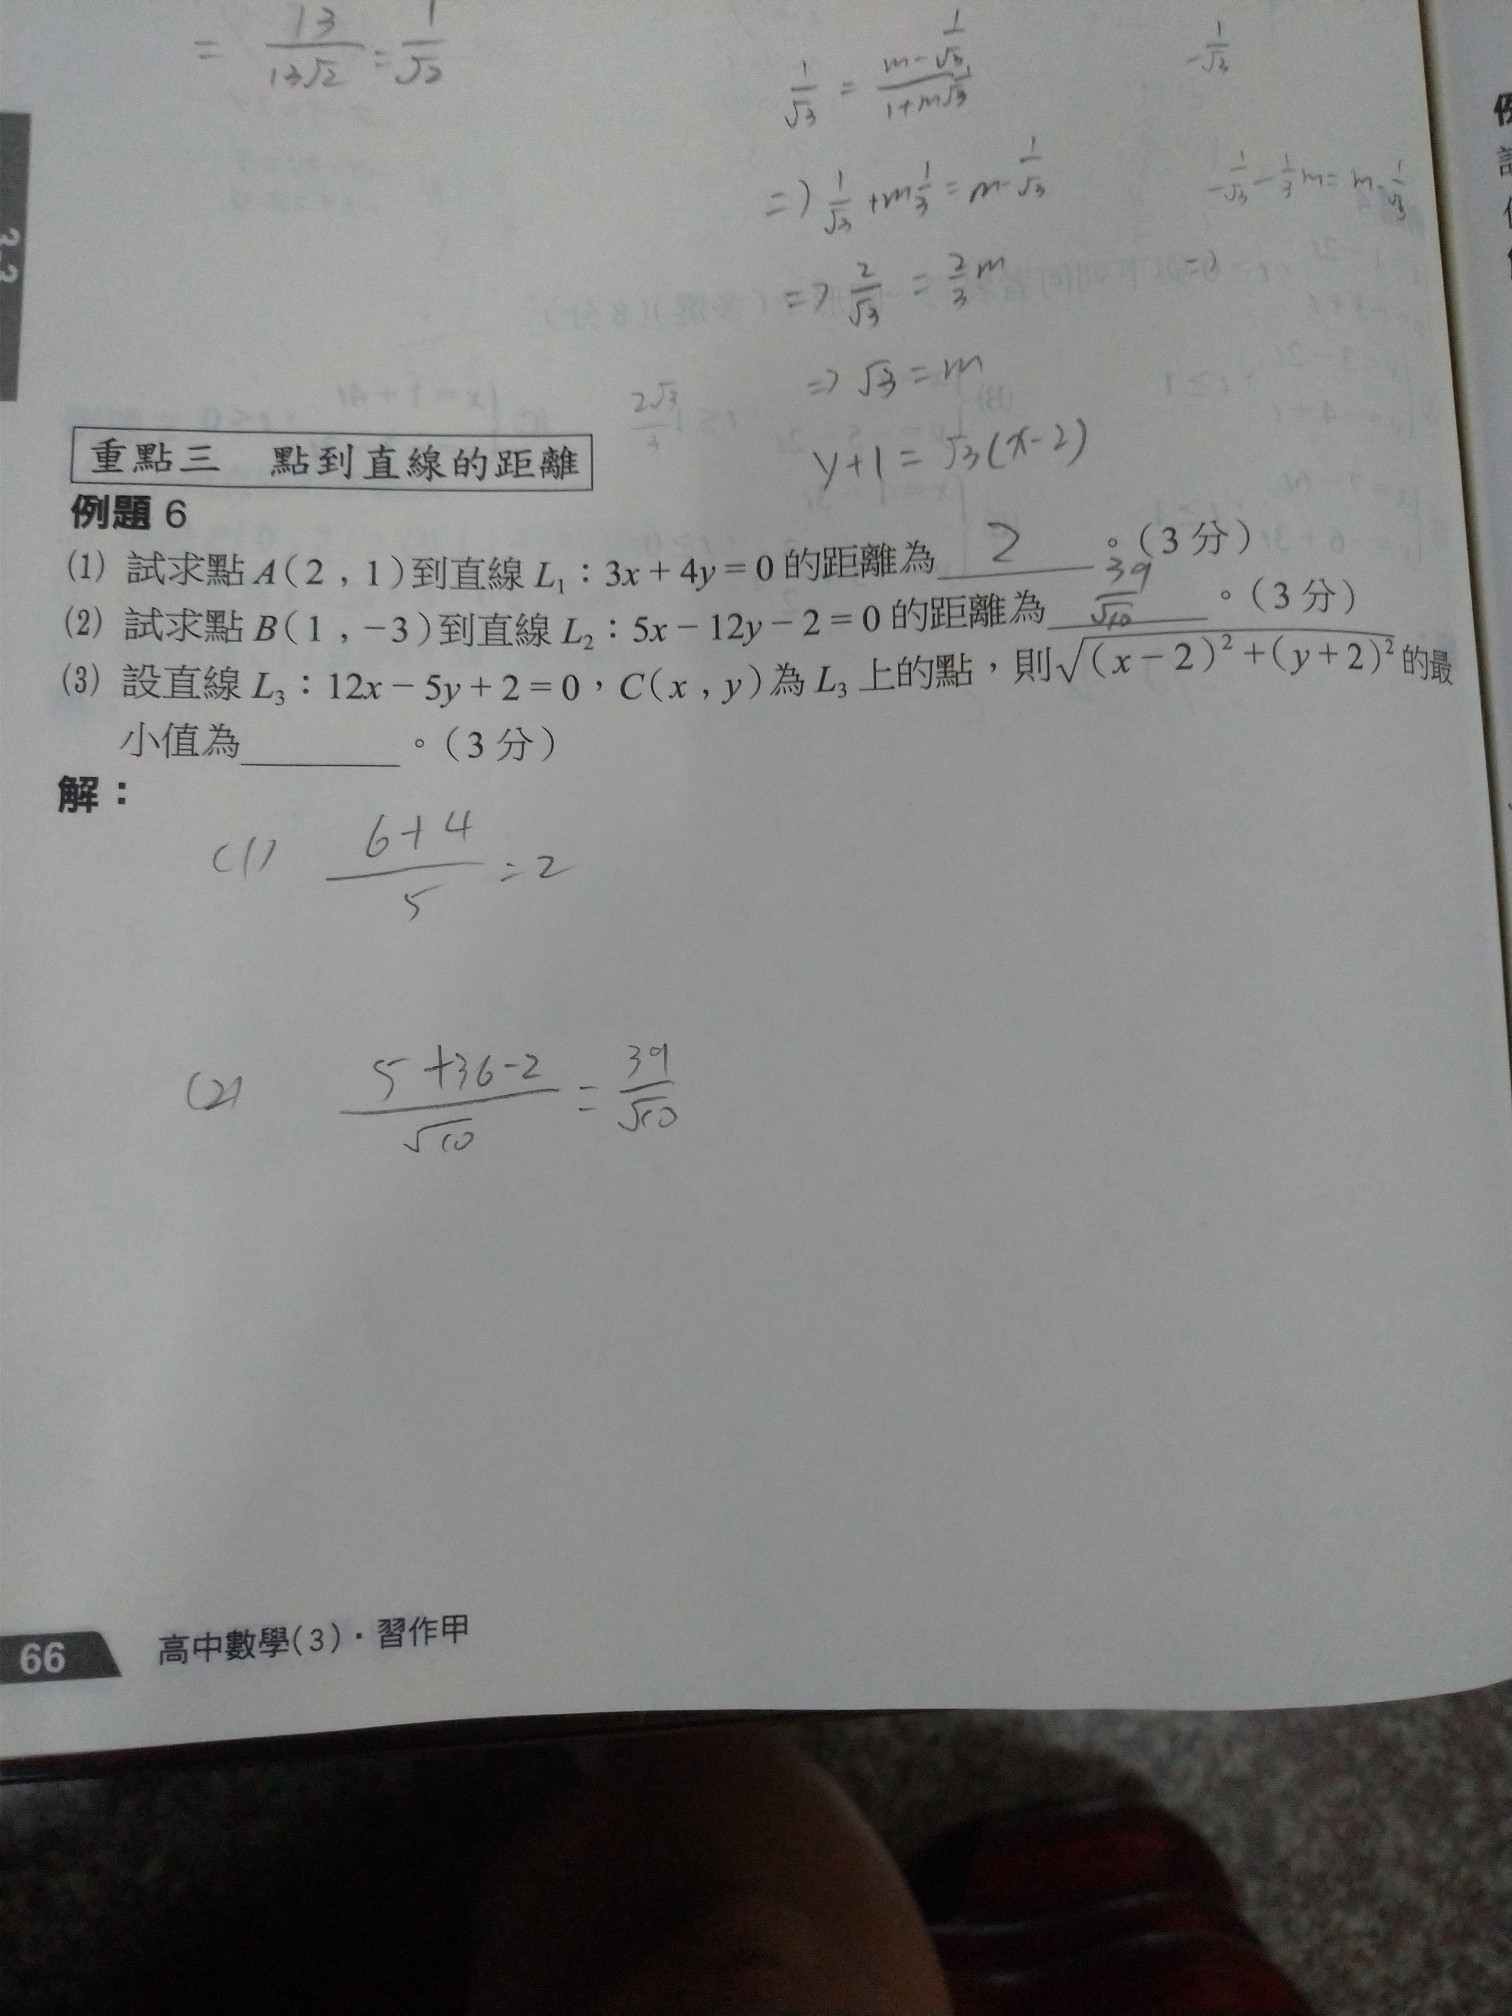 = 13/13√2 = 1/√2
1/√3 = (m - 1/√3)/(1 + m 1/√3)
-1/√3
=> 1/√3 + m 1/3 = m - 1/√3
-1/√3 - 1/3 m = m - 1/√3
=> 2/√3 = 2/3 m
=>
=> √3 = m
y+1 = √3(x-2)
重點三 點到直線的距離
例題 6
⑴ 試求點 A(2,1)到直線 L₁:3x+4y=0 的距離為 2 。(3 分)
⑵ 試求點 B(1,-3)到直線 L₂:5x-12y-2=0 的距離為 39/√10 。(3 分)
⑶ 設直線 L₃:12x-5y+2=0,C(x,y)為 L₃ 上的點,則√((x-2)²+(y+2)²)的最
小值為________。(3 分)
解:
(1) (6+4)/5 = 2
(2) (5+36-2)/√10 = 39/√10
66 高中數學(3)・習作甲